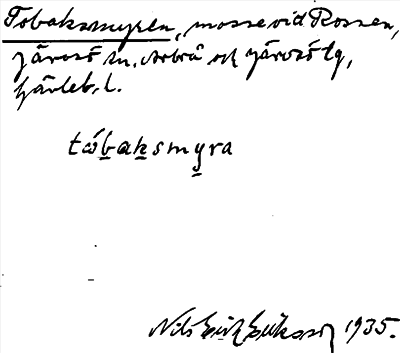 Tobaksmyren, mosse vid Rossen,
Järvsö sn, Arbrå och Järvsö tg,
Gävleb. l.
tóbaksmyra
Nils Erik Eriksson 1935.